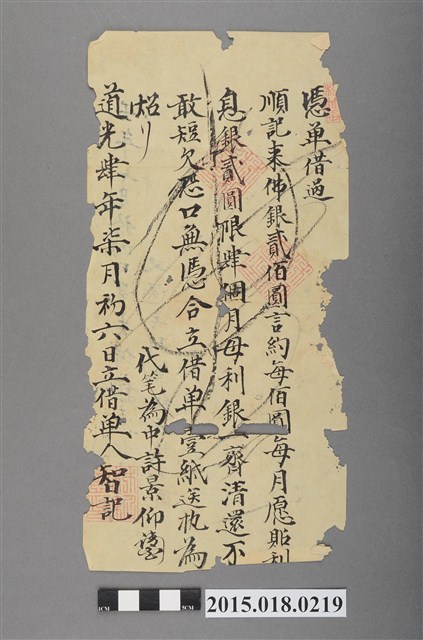 憑單借過
順記來佛銀貳佰圓言約每佰圓每月愿貼利
息銀貳圓限肆個月母利銀一齊清還不
敢短欠恐口無憑合立借單壹紙送执為
炤
代笔為中許景仰
道光肆年柒月初六日立借単人智記
1CM
5CM
2015.018.0219